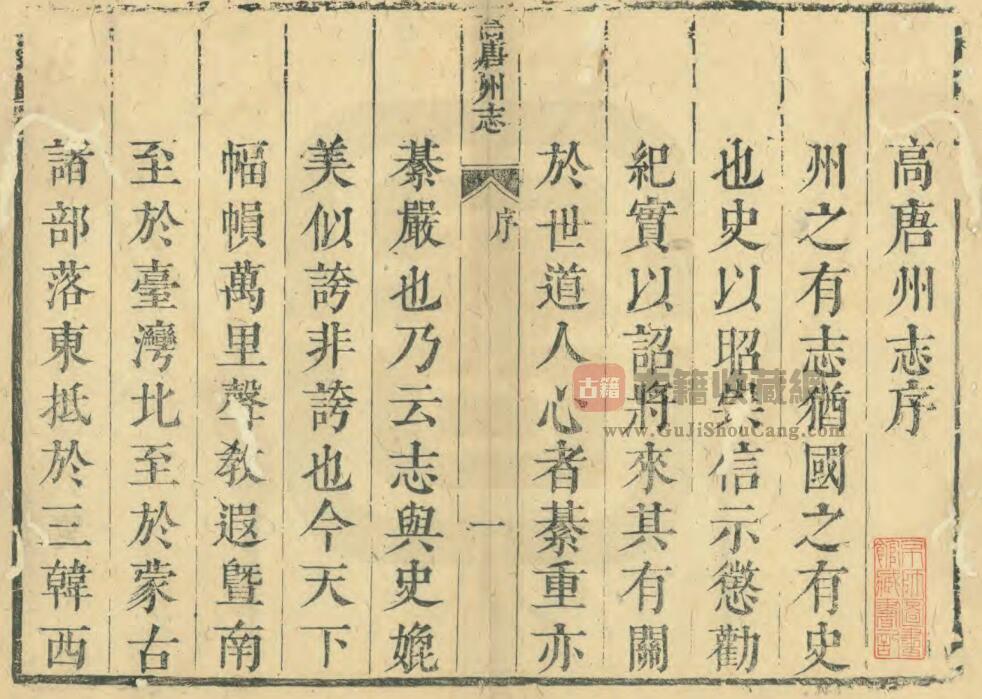 高唐州志序
州之有志猶國之有史
也史以昭
信示懲勸
紀實以詔將來其有關
於世道人心者綦重亦
唐州志
序
一
綦嚴也乃云志與史媲
美似誇非誇也今天下
幅幀萬里聲教遐曁南
至於臺灣北至於蒙古
諸部落東抵於三韓西
古籍
古籍收藏網
www.GuJiShouCang.com